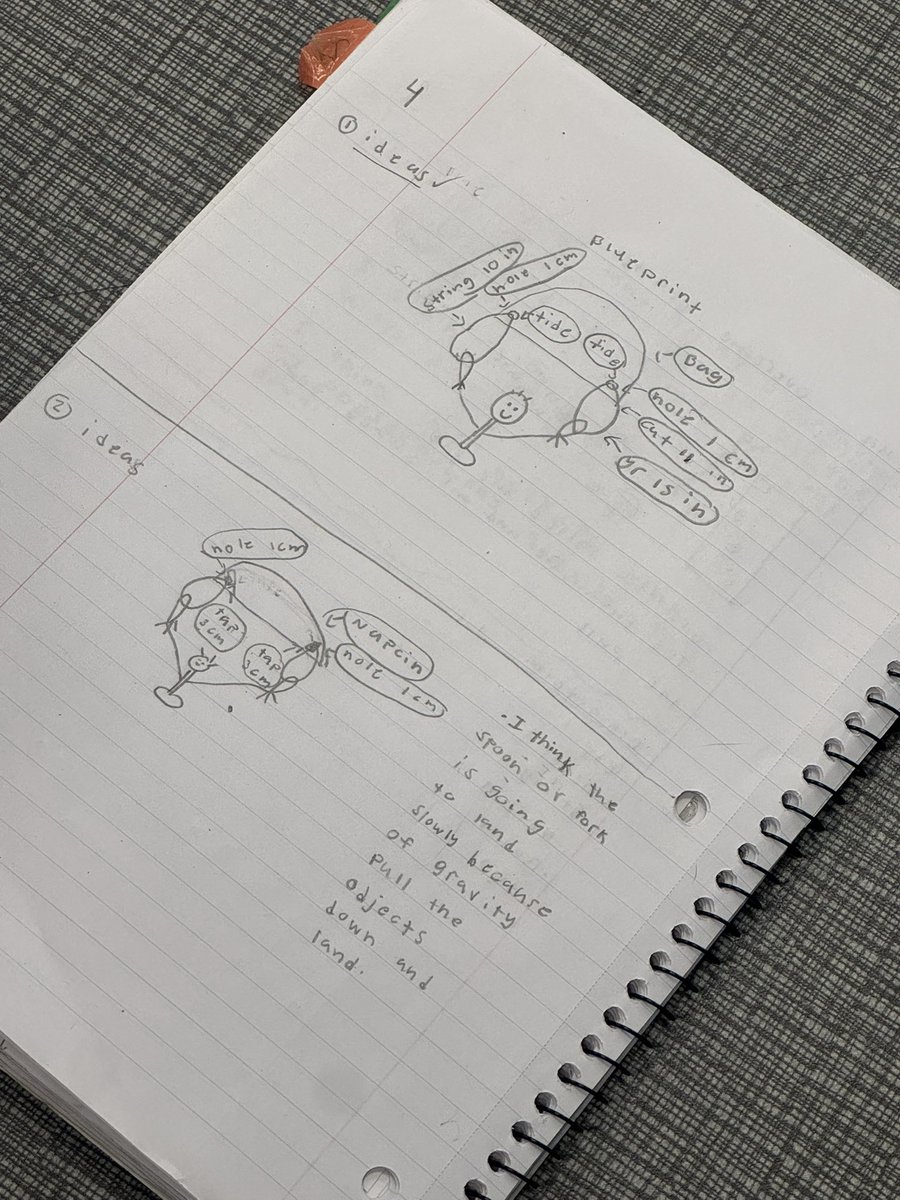 4
① ideas ✓
Blueprint
String 10 in
hole 1 cm
tide
tide
Bag
hole 1 cm
cut 11 in
or 15 in
② ideas
hole 1cm
tap
3cm
tap
3cm
Napcin
hole 1cm
. I think the
spoon or fork
is going
to land
slowly because
of gravity
pull the
objects
down and
land.